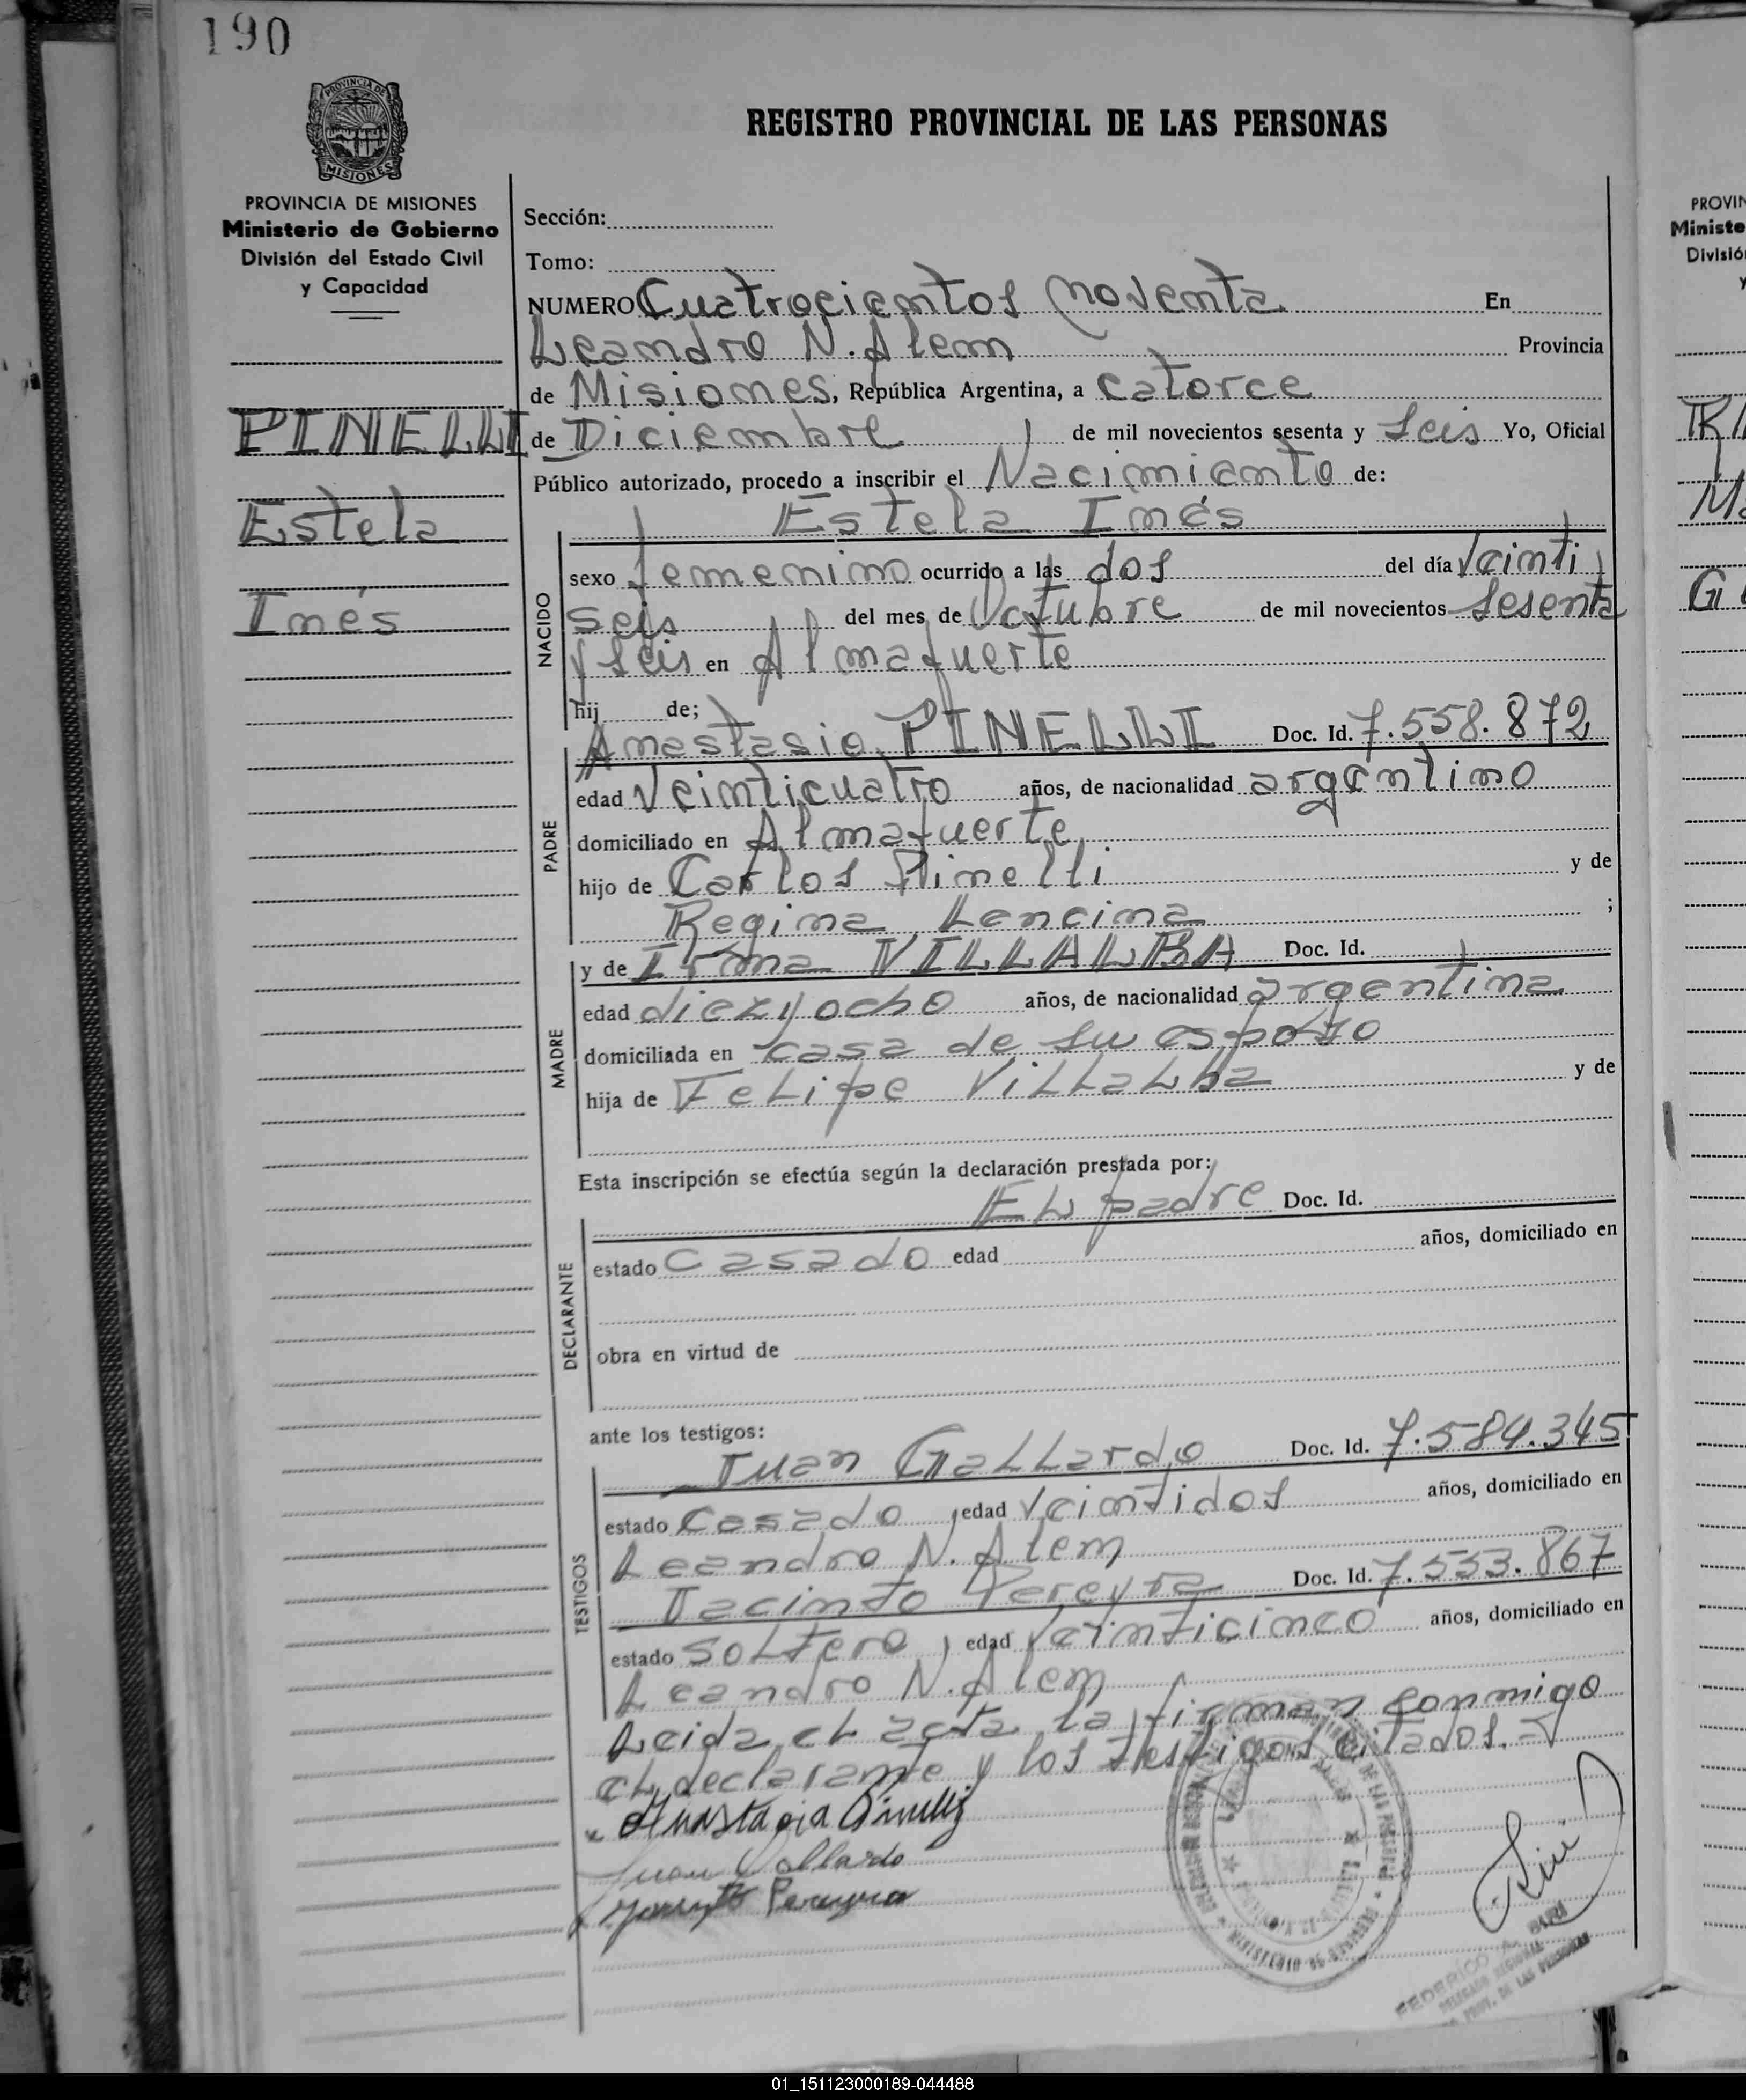 190
PROVINCIA DE
MISIONES
REGISTRO PROVINCIAL DE LAS PERSONAS
PROVINCIA DE MISIONES
Ministerio de Gobierno
División del Estado Civil
y Capacidad
PINELLI
Estela
Inés
Sección:
Tomo:
NUMERO Cuatrocientos noventa En
Leandro N. Alem Provincia
de Misiones, República Argentina, a catorce
de Diciembre de mil novecientos sesenta y seis Yo, Oficial
Público autorizado, procedo a inscribir el Nacimiento de:
Estela Inés
NACIDO
sexo femenino ocurrido a las dos del día veinti
seis del mes de Octubre de mil novecientos sesenta
y seis en Almafuerte
hij de;
PADRE
Anastasio PINELLI Doc. Id. 7.558.872
edad veinticuatro años, de nacionalidad argentino
domiciliado en Almafuerte
hijo de Carlos Pinelli y de
Regina Lencina ;
MADRE
y de Irma VILLALBA Doc. Id.
edad diez y ocho años, de nacionalidad argentina
domiciliada en casa de su esposo
hija de Felipe Villalba y de
Esta inscripción se efectúa según la declaración prestada por:
DECLARANTE
El padre Doc. Id.
estado casado edad años, domiciliado en
obra en virtud de
ante los testigos:
TESTIGOS
Juan Gallardo Doc. Id. 7.584.345
estado casado, edad veintidos años, domiciliado en
Leandro N. Alem
Jacinto Pereyra Doc. Id. 7.553.867
estado soltero, edad veinticinco años, domiciliado en
Leandro N. Alem
Leida el acta, la firman conmigo
el declarante y los testigos citados.-
Anastacio Pinelli
Juan Gallardo
Jacinto Pereyra
FEDERICO A.
DELEGADO REGIONAL
PROV. DE LAS PERSONAS
PROVIN
Ministe
Divisió
y
01_151123000189-044488